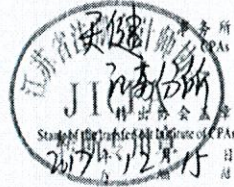 天健 事务所
CPAs
江苏省注册会计师协会
江苏分所
JICPA
转出协会盖章
Stamp of the transfer-out Institute of CPAs
2017年12月15日